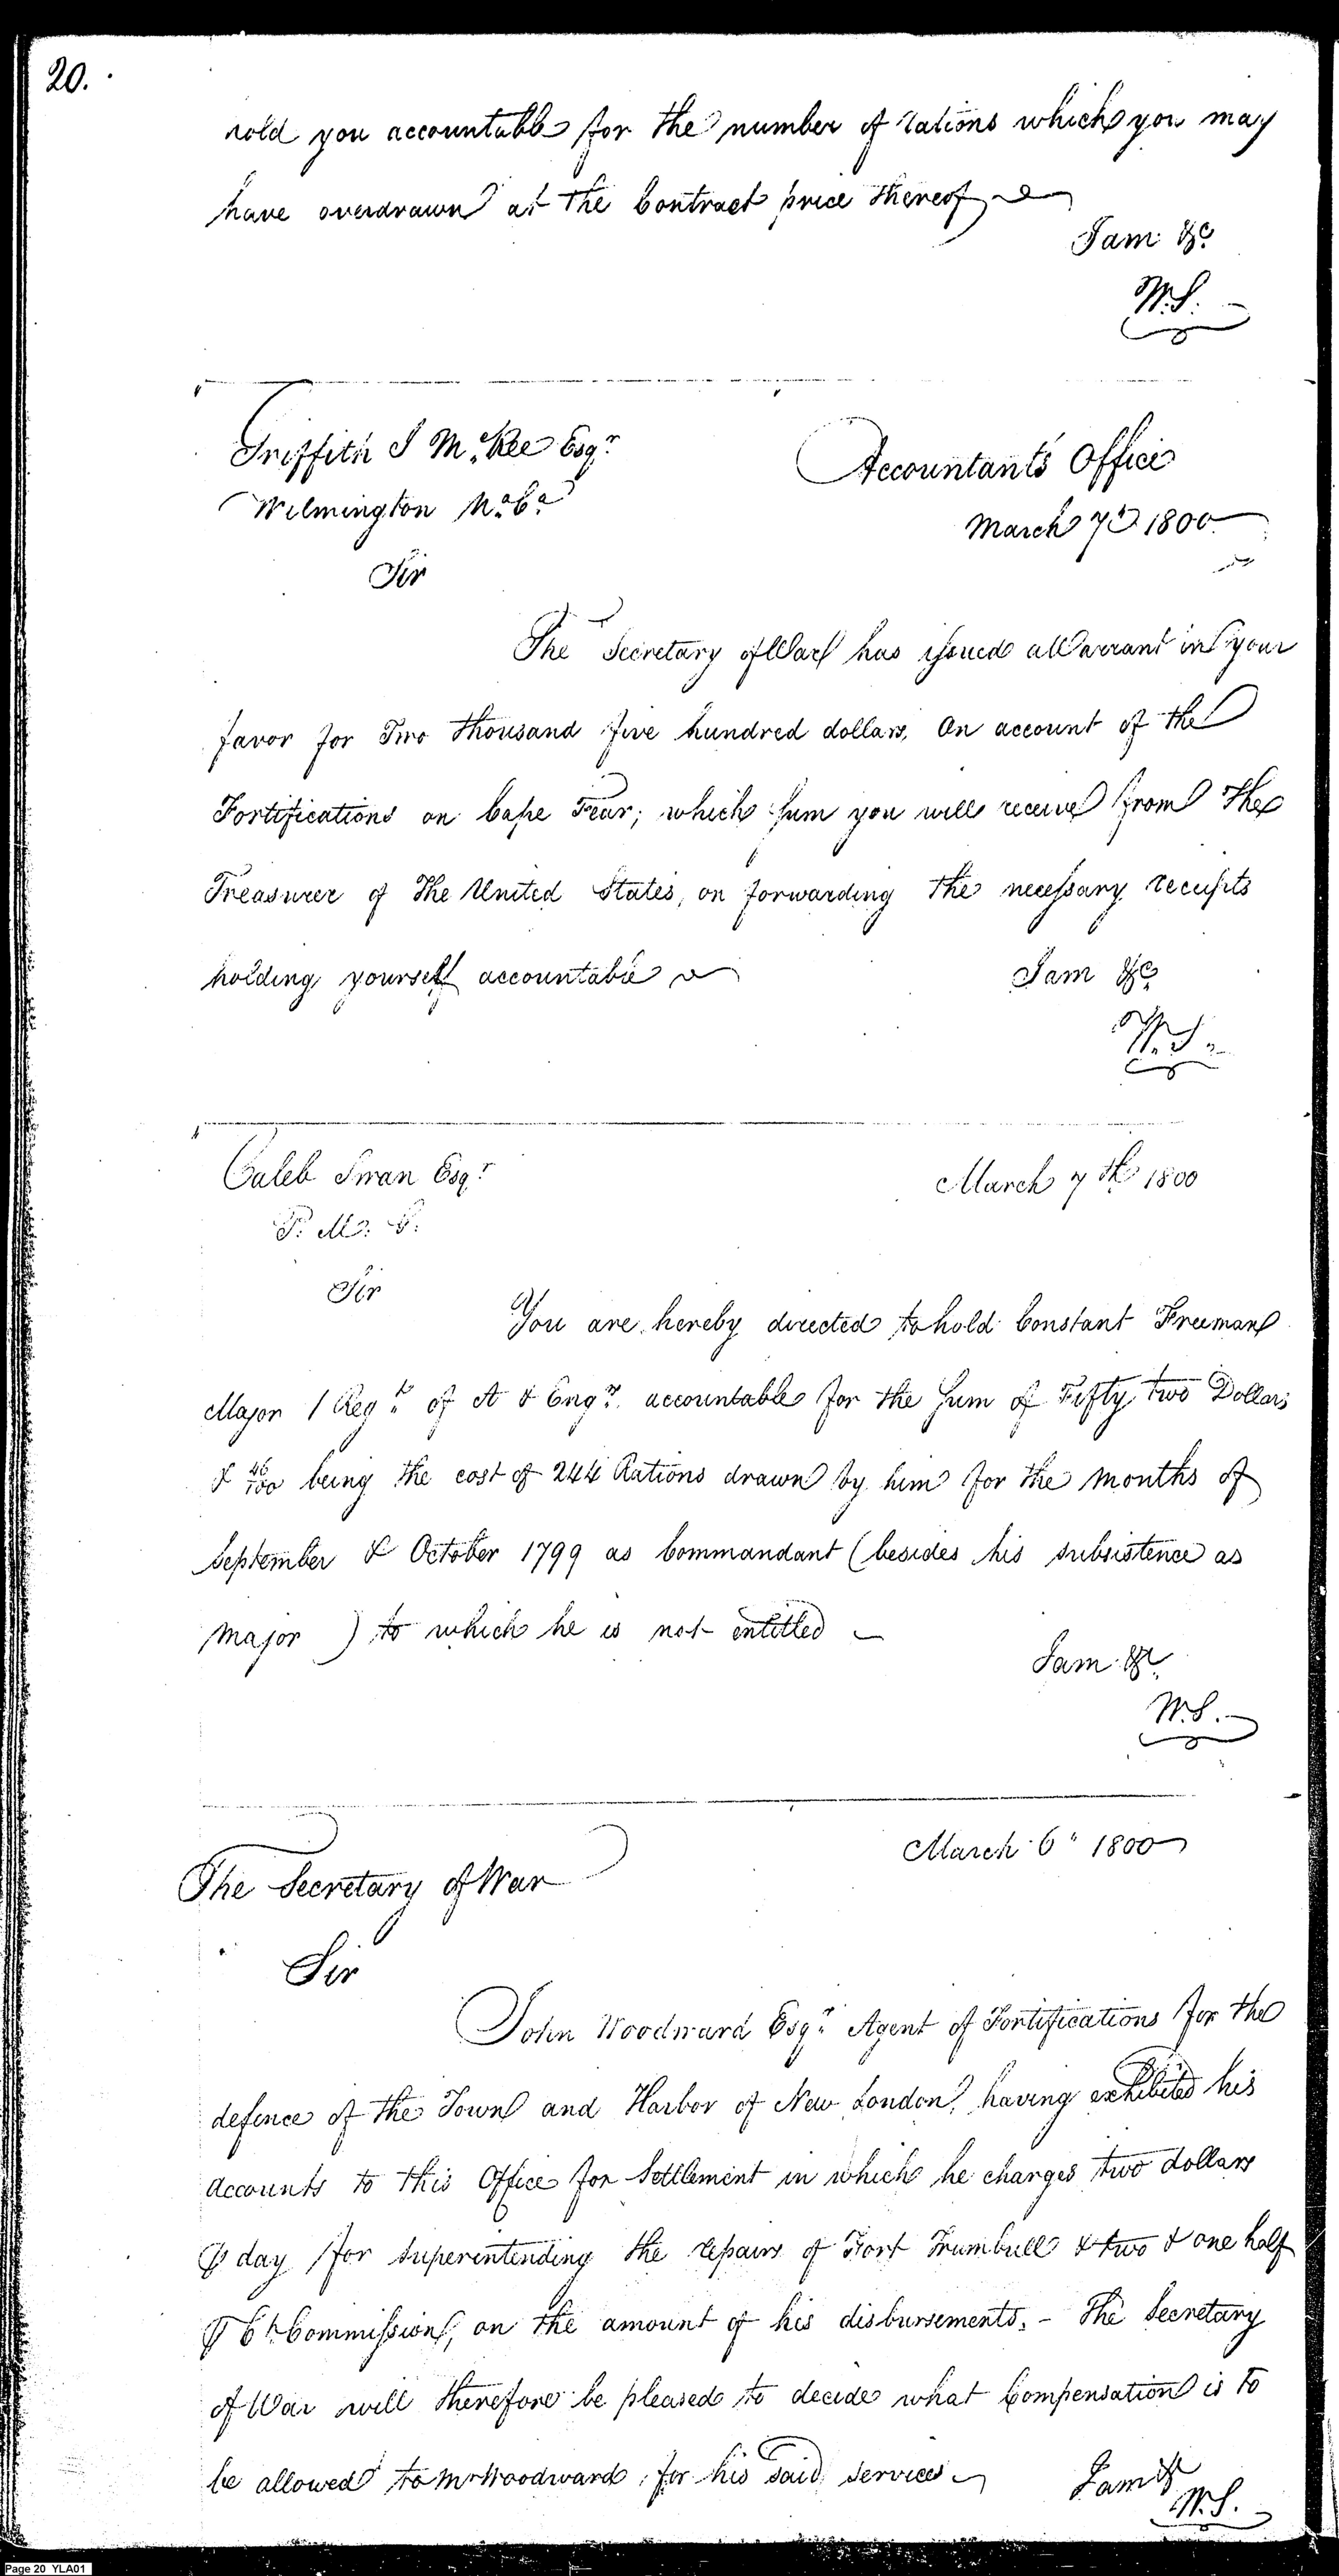 20.
hold you accountable for the number of rations which you may
have overdrawn at the Contract price thereof
I am &c
W.S.
Griffith J McRee Esqr
Wilmington No Ca
Accountants Office
March 7th 1800
Sir
The Secretary of War has issued a Warrant in your
favor for Two thousand five hundred dollars, on account of the
Fortifications on Cape Fear; which sum you will receive from the
Treasurer of the United States, on forwarding the necessary receipts
holding yourself accountable
I am &c
W.S.
Caleb Swan Esqr
P. M. G.
March 7th 1800
Sir
You are hereby directed to hold Constant Freeman
Major 1 Regt of A & Engrs accountable for the Sum of Fifty two Dollars
& 46/100 being the cost of 244 Rations drawn by him for the months of
September & October 1799 as Commandant (besides his subsistence as
Major ) to which he is not entitled
I am &c
W.S.
The Secretary of War
March 6" 1800
Sir
John Woodward Esqr Agent of Fortifications for the
defence of the Town and Harbor of New London, having exhibited his
accounts to this Office for Settlement in which he charges two dollars
⅌ day for superentending the repairs of Fort Trumbull & two & one half
⅌ Ct Commission, on the amount of his disbursements. - The Secretary
of War will therefore be pleased to decide what Compensation is to
be allowed to Mr Woodward, for his said services
I am &c
W.S.
Page 20 YLA01